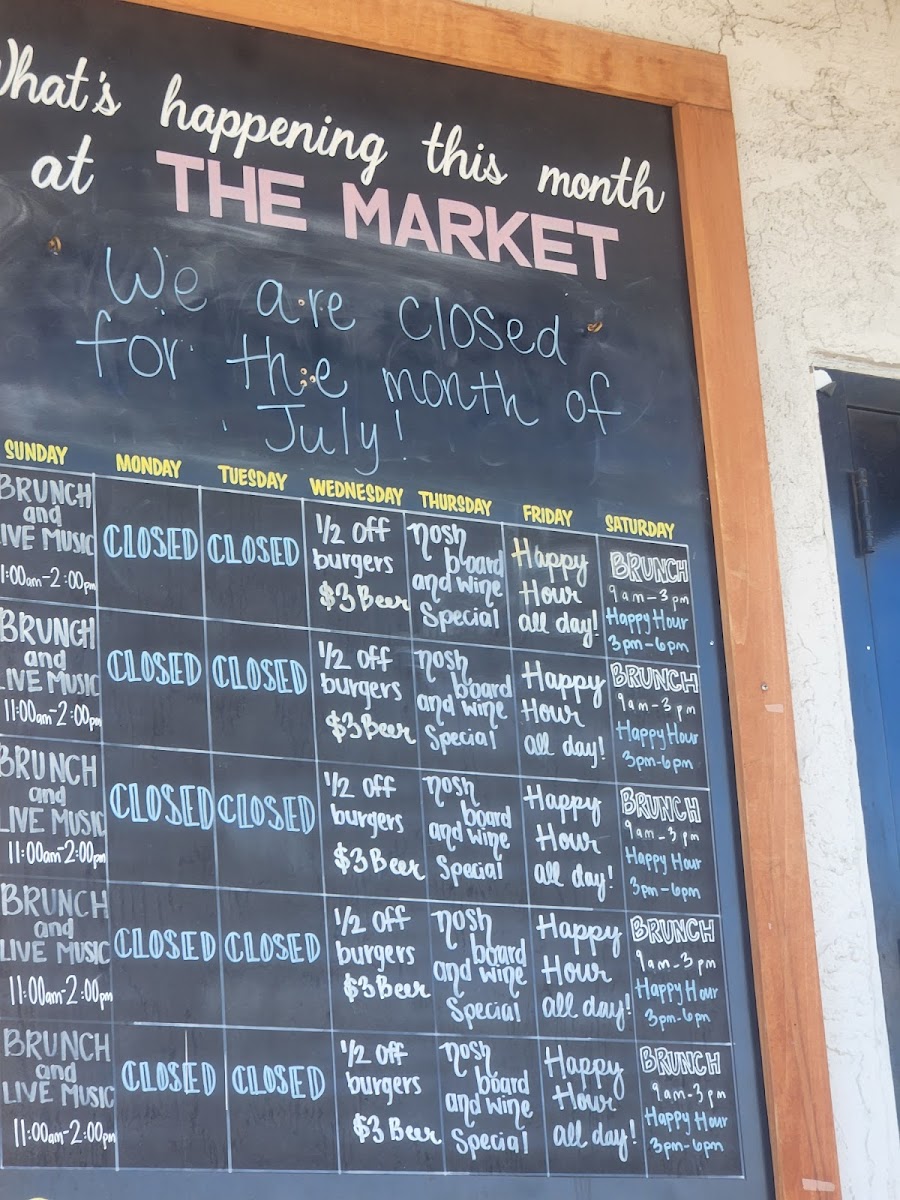 What's happening this month
at THE MARKET
We are closed
for the month of
July!
SUNDAY MONDAY TUESDAY WEDNESDAY THURSDAY FRIDAY SATURDAY
BRUNCH
and
LIVE MUSIC
11:00am-2:00pm
CLOSED
CLOSED
1/2 off
burgers
$3 Beer
nosh
board
and wine
Special
Happy
Hour
all day!
BRUNCH
9am-3pm
Happy Hour
3pm-6pm
BRUNCH
and
LIVE MUSIC
11:00am-2:00pm
CLOSED
CLOSED
1/2 off
burgers
$3 Beer
nosh
board
and wine
Special
Happy
Hour
all day!
BRUNCH
9am-3pm
Happy Hour
3pm-6pm
BRUNCH
and
LIVE MUSIC
11:00am-2:00pm
CLOSED
CLOSED
1/2 off
burgers
$3 Beer
nosh
board
and wine
Special
Happy
Hour
all day!
BRUNCH
9am-3pm
Happy Hour
3pm-6pm
BRUNCH
and
LIVE MUSIC
11:00am-2:00pm
CLOSED
CLOSED
1/2 off
burgers
$3 Beer
nosh
board
and wine
Special
Happy
Hour
all day!
BRUNCH
9am-3pm
Happy Hour
3pm-6pm
BRUNCH
and
LIVE MUSIC
11:00am-2:00pm
CLOSED
CLOSED
1/2 off
burgers
$3 Beer
nosh
board
and wine
Special
Happy
Hour
all day!
BRUNCH
9am-3pm
Happy Hour
3pm-6pm